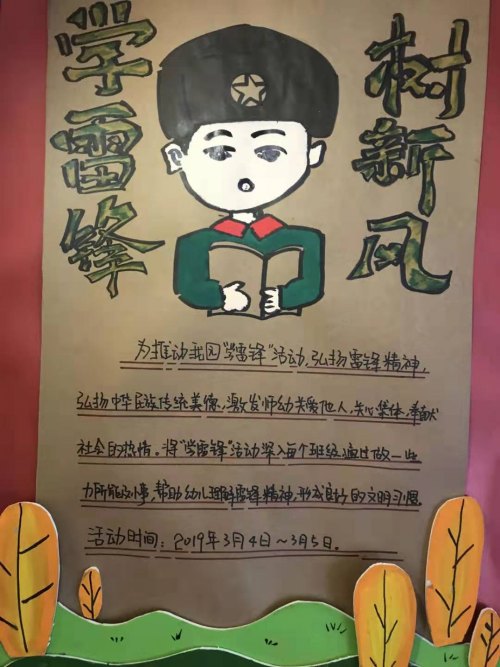 学雷锋
树新风
为推动我园"学雷锋"活动,弘扬雷锋精神,
弘扬中华民族传统美德,激发师幼关爱他人,关心集体,奉献
社会的热情。将"学雷锋"活动深入每个班级,通过做一些
力所能及小事,帮助幼儿理解雷锋精神,形成良好的文明习惯。
活动时间:2019年3月4日~3月5日。